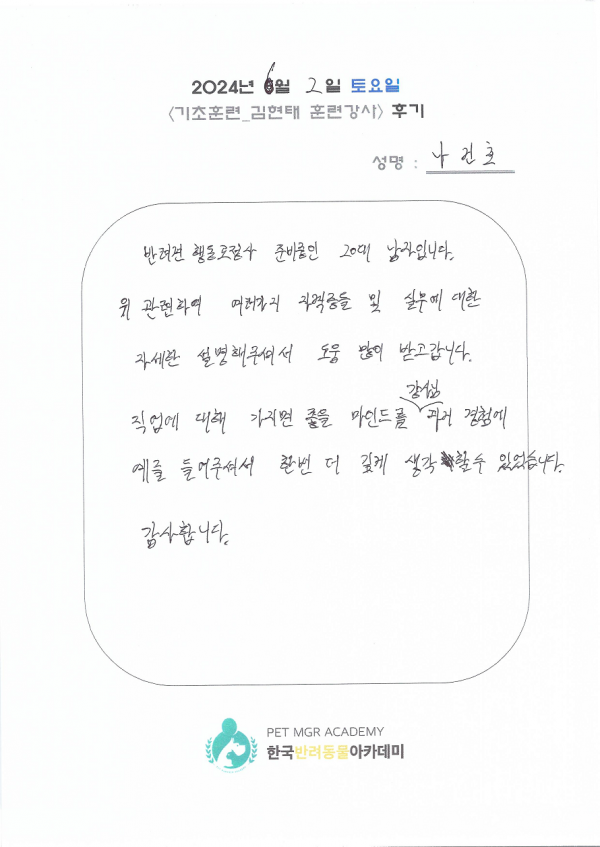 2024년 6월 2일 토요일
<기초훈련_김현태 훈련강사> 후기
성명 : 나건호
반려견 행동교정사 준비중인 20대 남자입니다.
위 관련하여 여러가지 자격증들 및 실무에 대한
자세한 설명해주셔서 도움 많이 받고갑니다.
강사님
직업에 대해 가지면 좋을 마인드를 과거 경험에
예를 들어주셔서 한번 더 깊게 생각 할수 있었습니다.
감사합니다.
PET MGR ACADEMY
한국반려동물아카데미